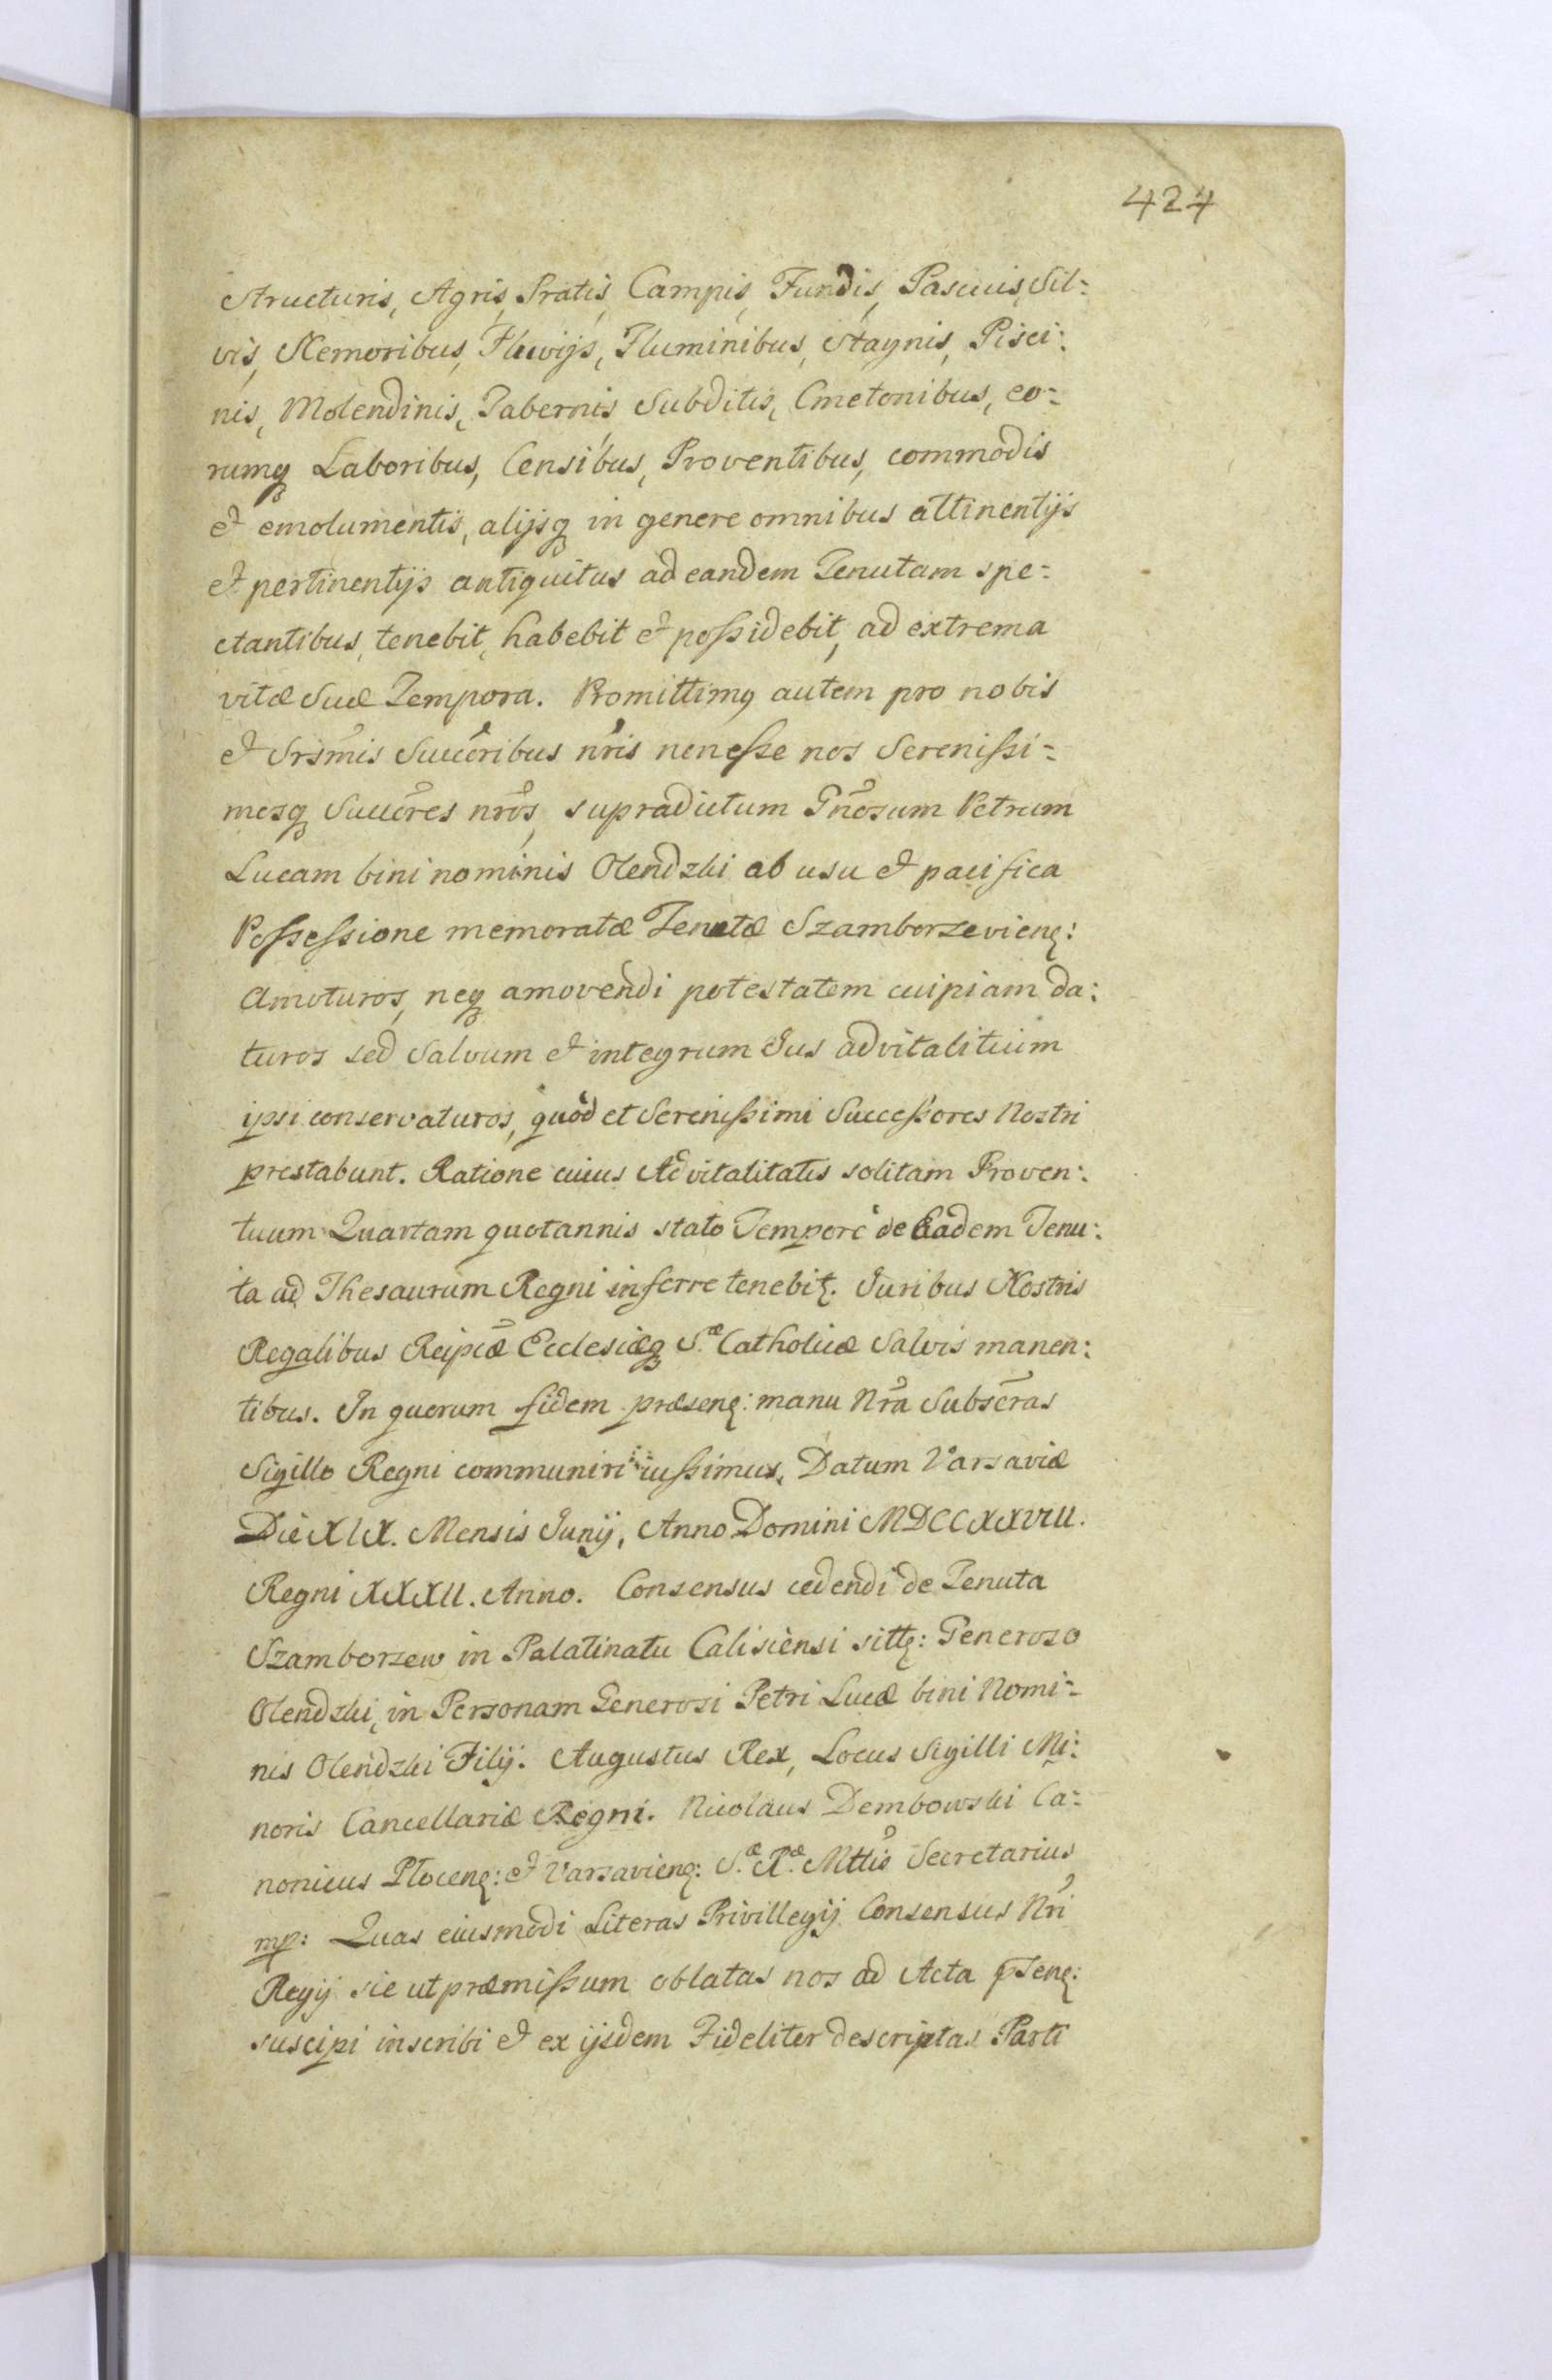 424
Structuris, Agris, Pratis, Campis, Fundis, Pascuis, Sil=
vis, Nemoribus, Fluvijs, Fluminibus, Stagnis, Pisci:
nis, Molendinis, Tabernis Subditis, Cmetonibus, eo=
rumq Laboribus, Censibus, Proventibus, commodis
et emolumentis, alijsq in genere omnibus attinentijs
et pertinentijs antiquitus ad eandem Tenutam spe=
ctantibus, tenebit, habebit et possidebit, ad extrema
vitæ Suæ Tempora. Promittimq autem pro nobis
et Srsm̃is Succõribus nr̃is nonesse nos Serenissi=
mosq Succõres nr̃os, supradictum Gñosum Petrum
Lucam bini nominis Olendzki ab usu et pacifica
Possessione memoratæ Tenutæ Szamborzevien:
Amoturos, neq amovendi potestatem cuipiam da:
turos sed Salvum et integrum Jus advitalitium
ipsi conservaturos, quòd et Serenissimi Successores Nostri
prestabunt. Ratione cuius Advitalitatis solitam Proven:
tuum Quartam quotannis stato Tempore de Eadem Tenu:
ta ad Thesaurum Regni inferre tenebit. Juribus Nostris
Regalibus Reipcæ̃ Ecclesiæq S.æ Catholicæ Salvis manen:
tibus. In quorum fidem præsen: manu Nr̃a Subscr̃as
Sigillo Regni communiri iussimus. Datum Varsaviæ
Die XIX. Mensis Junij, Anno Domini MDCCXXVIII.
Regni XXXII. Anno. Consensus cedendi de Tenuta
Szamborzew in Palatinatu Calisiensi sitt: Generoso
Olendzki, in Personam Generosi Petri Lucæ bini Nomi=
nis Olendzki Filij. Augustus Rex, Locus Sigilli Mi:
noris Cancellariæ Regni. Nicolaus Dembowski Ca=
nonicus Plocen: et Varsavien: S.æ R.æ Mttis Secretarius
mp: Quas eiusmodi Literas Privillegij Consensus Nr̃i
Regij sic ut præmissum oblatas nos ad Acta p̃sen:
suscipi inscribi et ex ijsdem Fideliter descriptas Parti